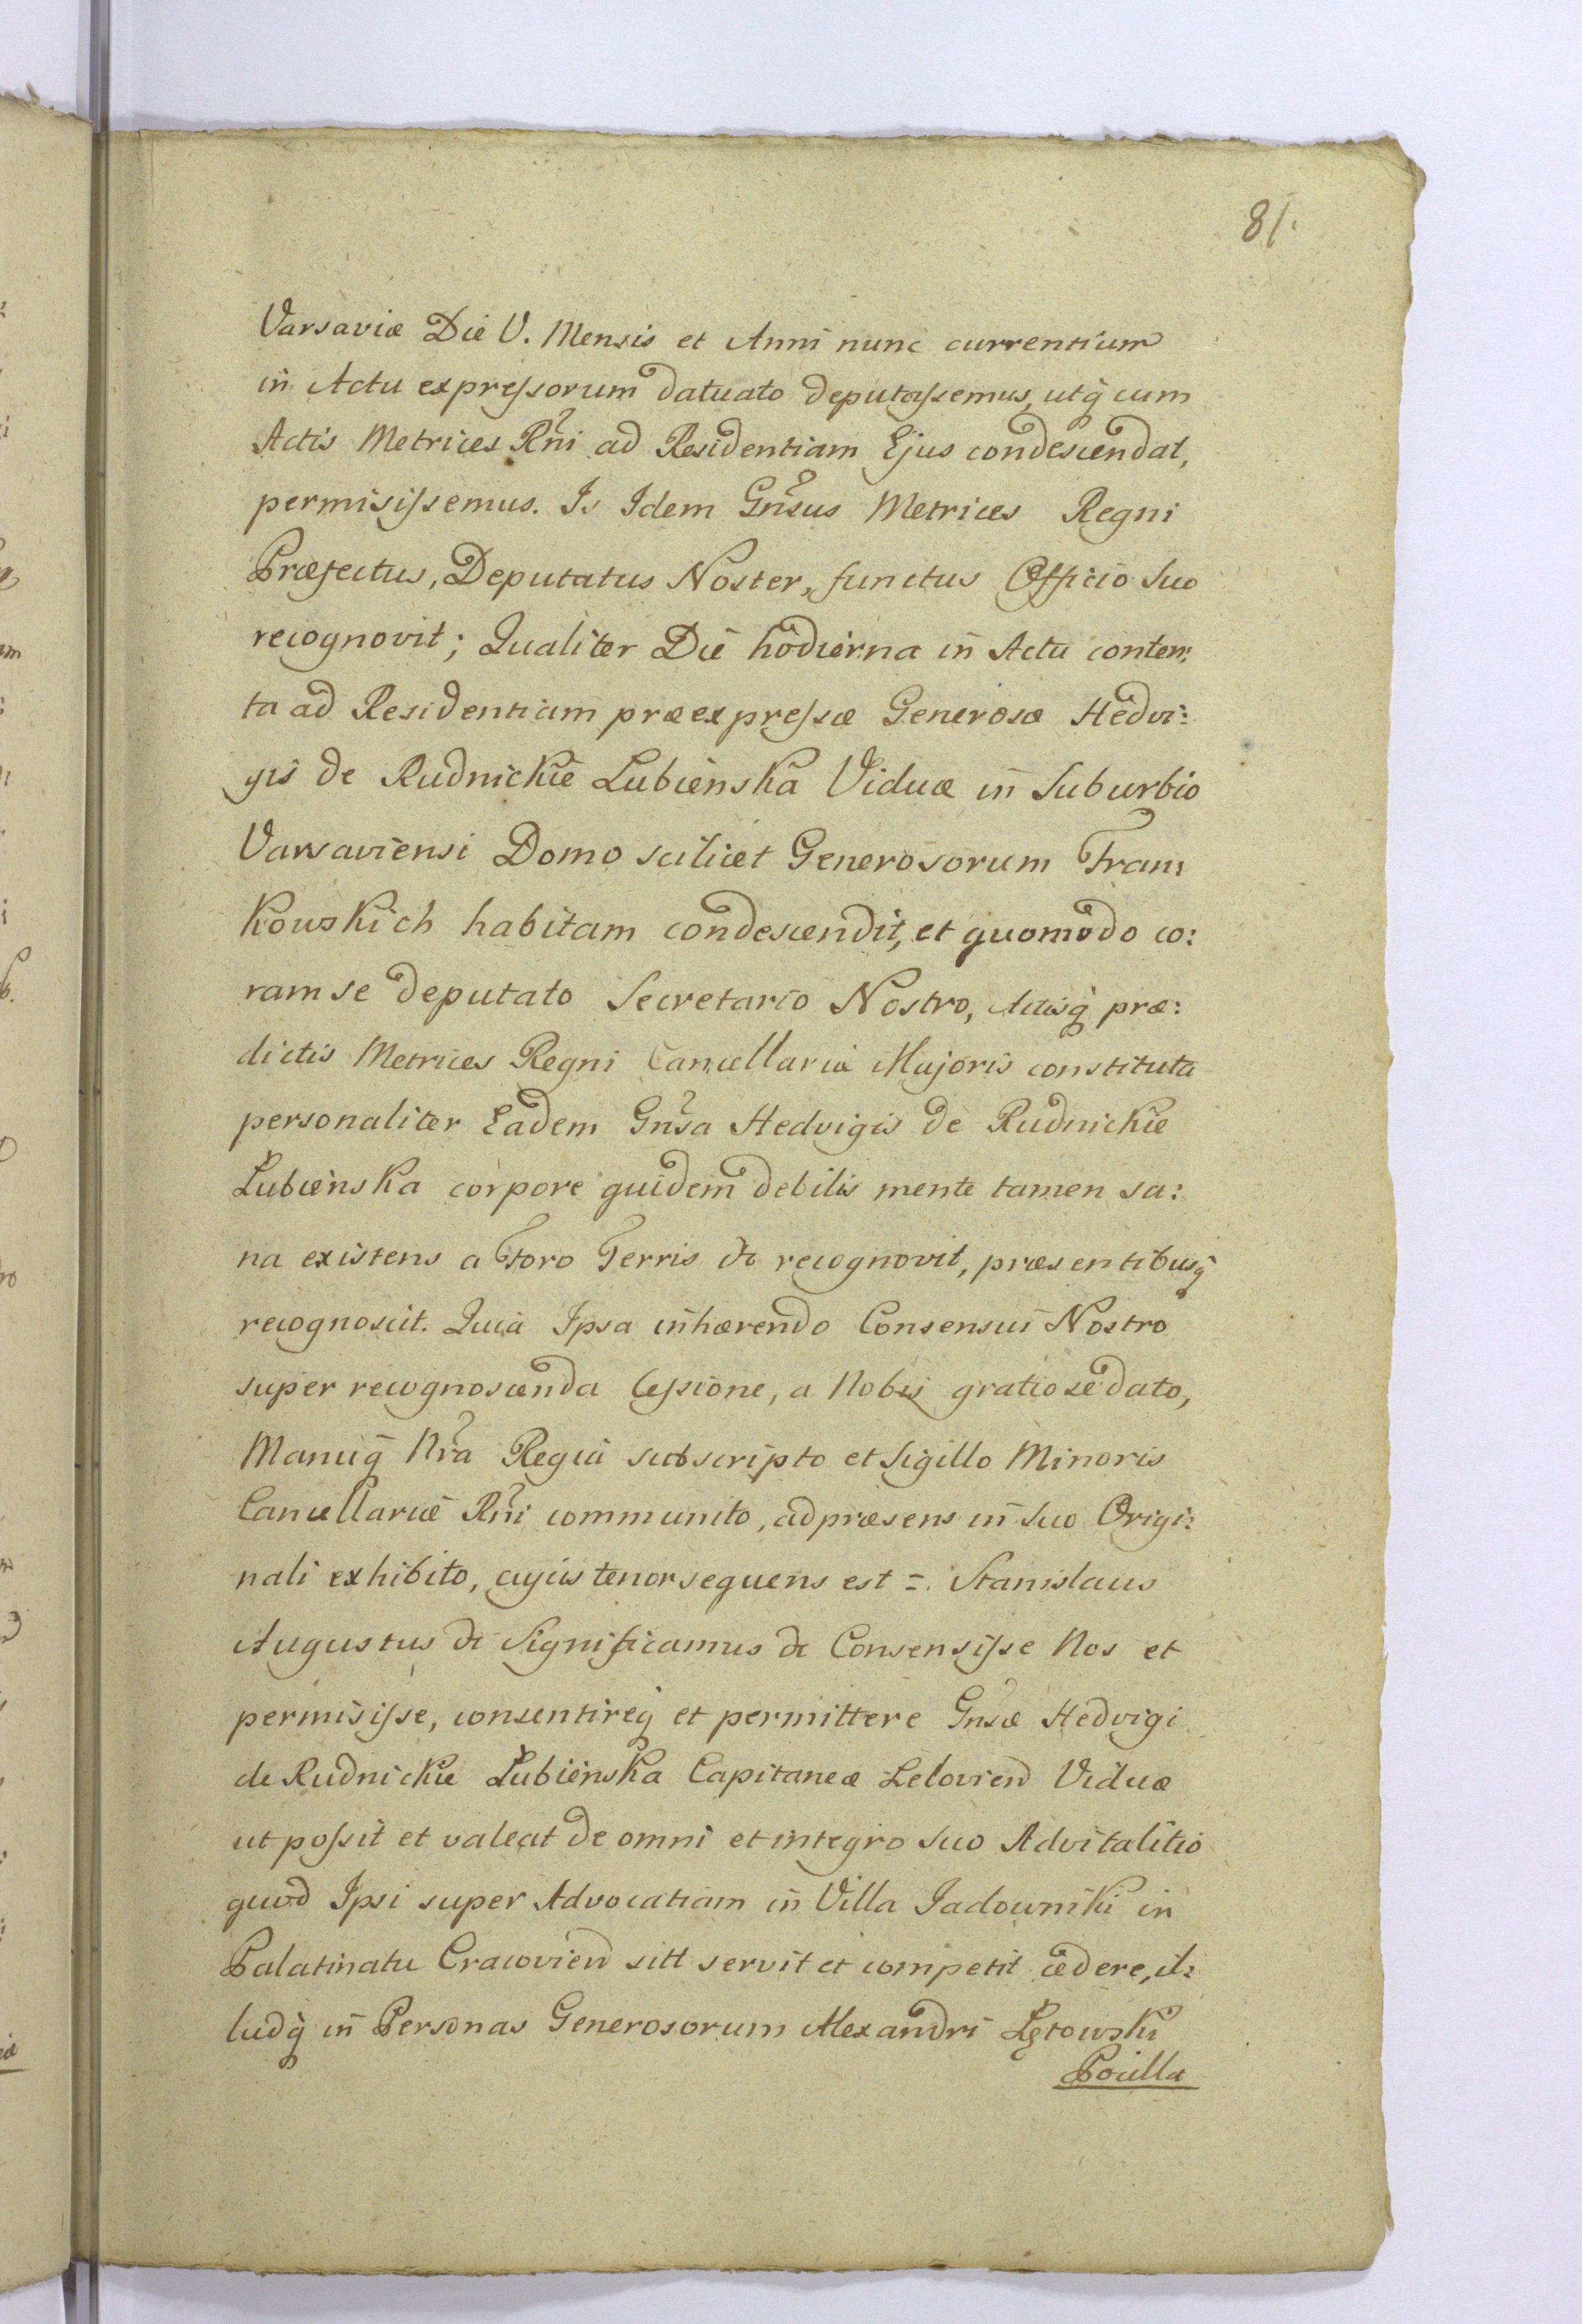 81.
Varsaviæ Die V. Mensis et Anni nunc currentium
in Actu expressorum datuato deputassemus, utq̃ cum
Actis Metrices Rñi ad Residentiam Ejus condescendat,
permisissemus. Is Idem Gñsus Metrices Regni
Præfectus, Deputatus Noster, functus Officio Suo
recognovit; Qualiter Die hodierna in Actu conten:
ta ad Residentiam præexpressæ Generosæ Hedvi:
gis de Rudnickie Łubienska Viduæ in Suburbio
Varsaviensi Domo scilicet Generosorum Fran:
kowskich habitam condescendit, et quomodo co:
ram se deputato Secretario Nostro, Actisq̃ præ:
dictis Metrices Regni Cancellaria Majoris constituta
personaliter Eadem Gñsa Hedvigis de Rudnickie
Łubienska corpore quidem debilis mente tamen sa:
na existens a Foro Terris &c recognovit, præsentibusq̃
recognoscit. Quia Ipsa inhærendo Consensui Nostro
super recognoscenda Cessione, a Nobis gratiose dato,
Manuq̃ Nr̃a Regia subscripto et Sigillo Minoris
Cancellariæ Rñi communito, ad præsens in Suo Origi:
nali exhibito, cujus tenor sequens est =. Stanislaus
Augustus &c Significamus &c Consensisse Nos et
permisisse, consentireq̃ et permittere Gñsæ Hedvigi
de Rudnickie Łubienska Capitaneæ Lelovien Viduæ
ut possit et valeat de omni et integro Suo Advitalitio
quod Ipsi super Advocatiam in Villa Jadowniki in
Palatinatu Cracovien sitt servit et competit cedere, il:
ludq̃ in Personas Generosorum Alexandri Łętowski
Pocilla